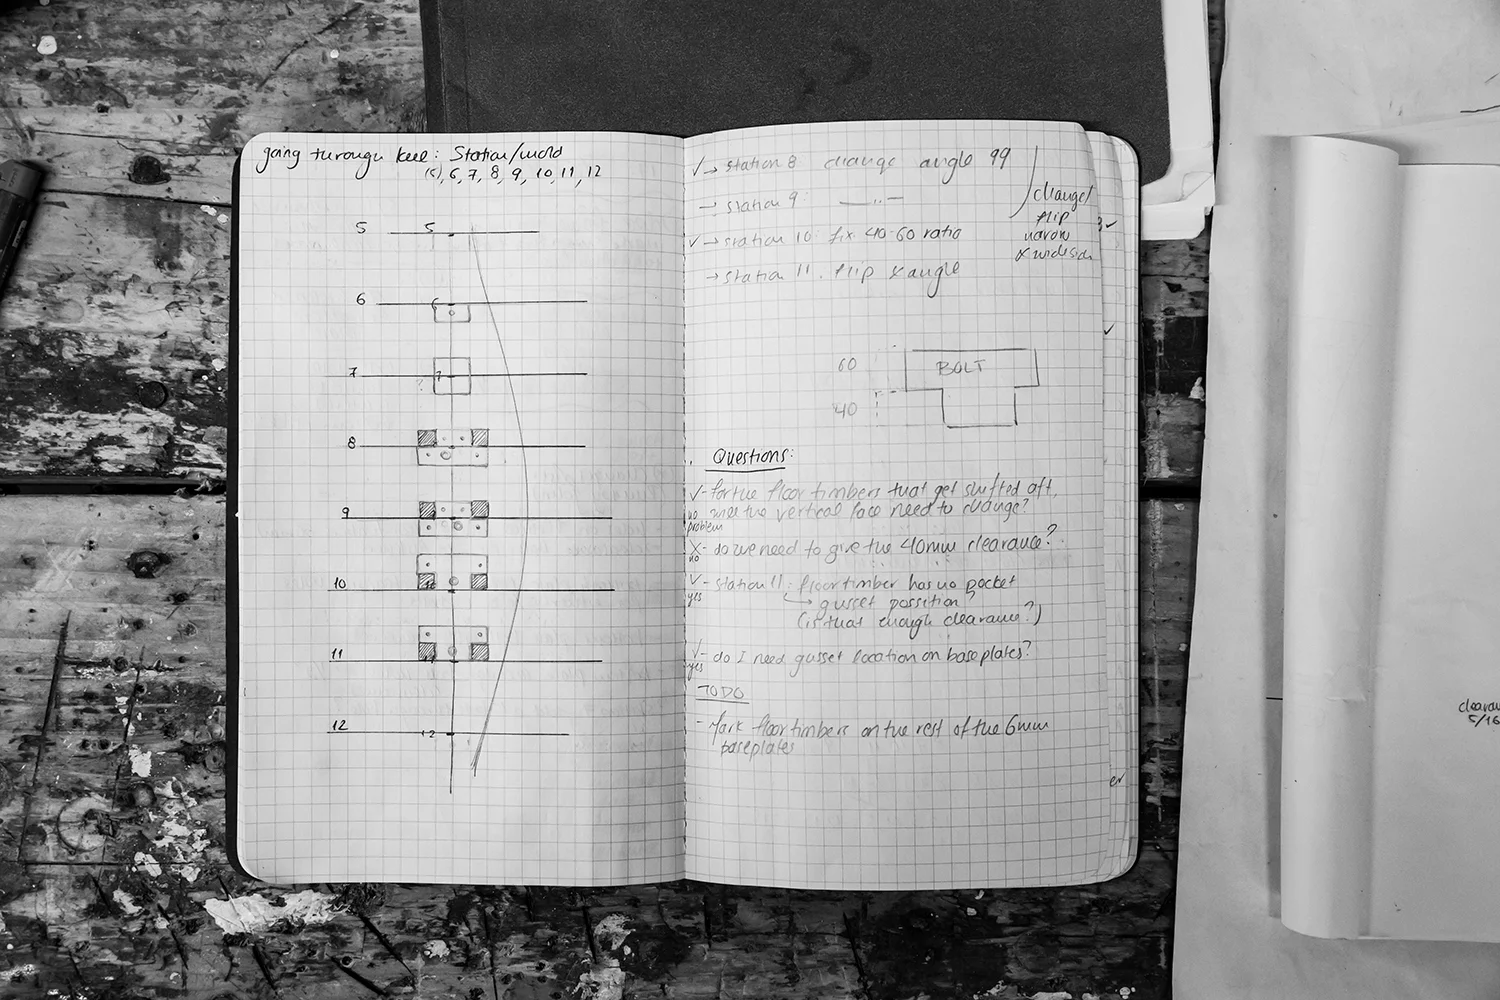 going through keel: Station/mold
(5), 6, 7, 8, 9, 10, 11, 12
5 5
6 6
7 7
8
9
10 10
11 11
12 12
√→ station 8: change angle 99
→ station 9: —..—
√→ station 10: fix 40-60 ratio
→ station 11. flip & angle
change/
flip
narow
& wide side
60
BOLT
40
Questions:
√- for the floor timbers that get shifted aft,
no will the vertical face need to change?
problem
X- do we need to give the 40mm clearance?
no
√- station 11: floor timber has no pocket
yes → gusset possition?
(is that enough clearance?)
√- do I need gusset location on baseplates?
yes
TODO
- Mark floor timbers on the rest of the 6mm
baseplates
5/16